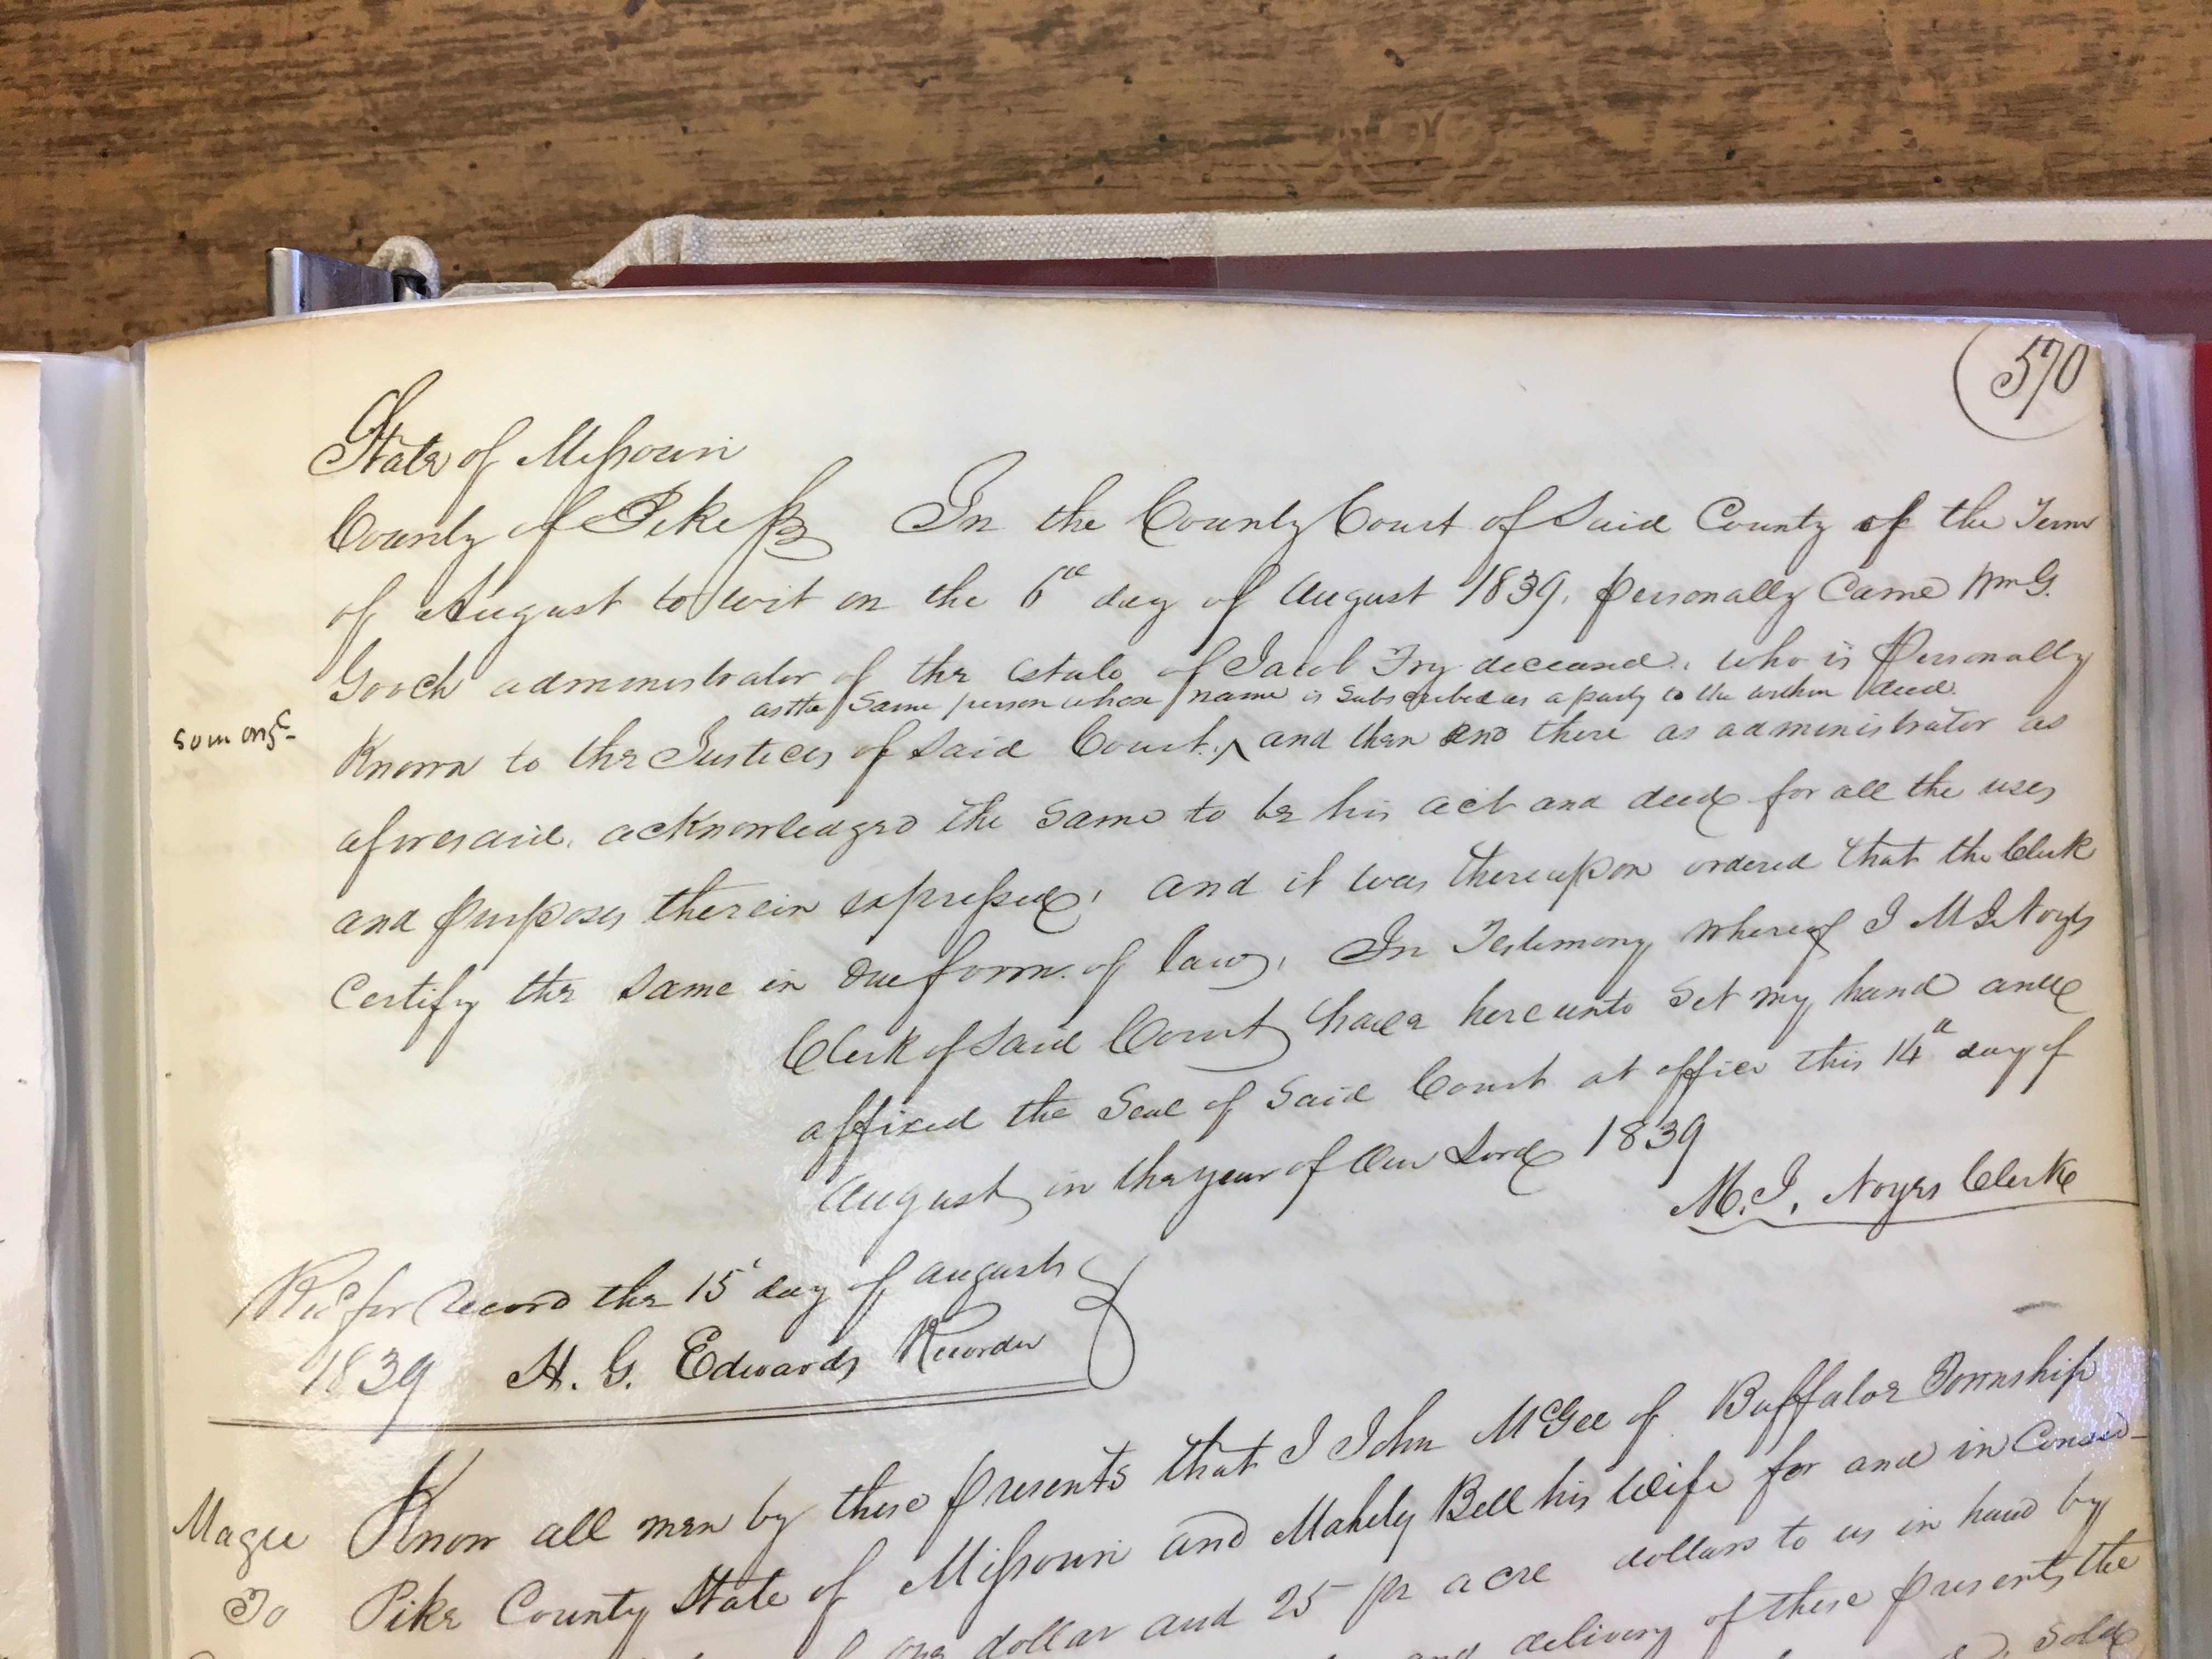 570
State of Missouri
County of Pike ss In the County Court of Said County of the Term
of August to wit on the 6th day of August 1839. personally Came Wm G.
Gooch administrator of the estate of Jacob Fry deceased. who is personally
as the Same person whose name is Subscribed as a party to the within deed.
Known to the Justices of Said Court. ^ and then and there as administrator as
aforesaid. acknowledged the Same to be his act and deed for all the uses
and purposes therein expressed, and it was thereupon ordered that the Clerk
Certify the Same in due form. of law. In Testimony whereof I M J Noyes
Clerk of Said Court have here unto Set my hand and
affixed the Seal of Said Court at office this 14th day of
August in the year of Our Lord 1839
M. J. Noyes Clerk
Recd for Record the 15 day of August
1839 H. G. Edwards Recorder
Magee Know all men by these presents that I John McGee of Buffaloe Township
To Pike County State of Missouri and Mahely Bell his Wife for and in Consid-
one dollar and 25 pr acre dollars to us in hand by
and delivery of these presents, the
Sold